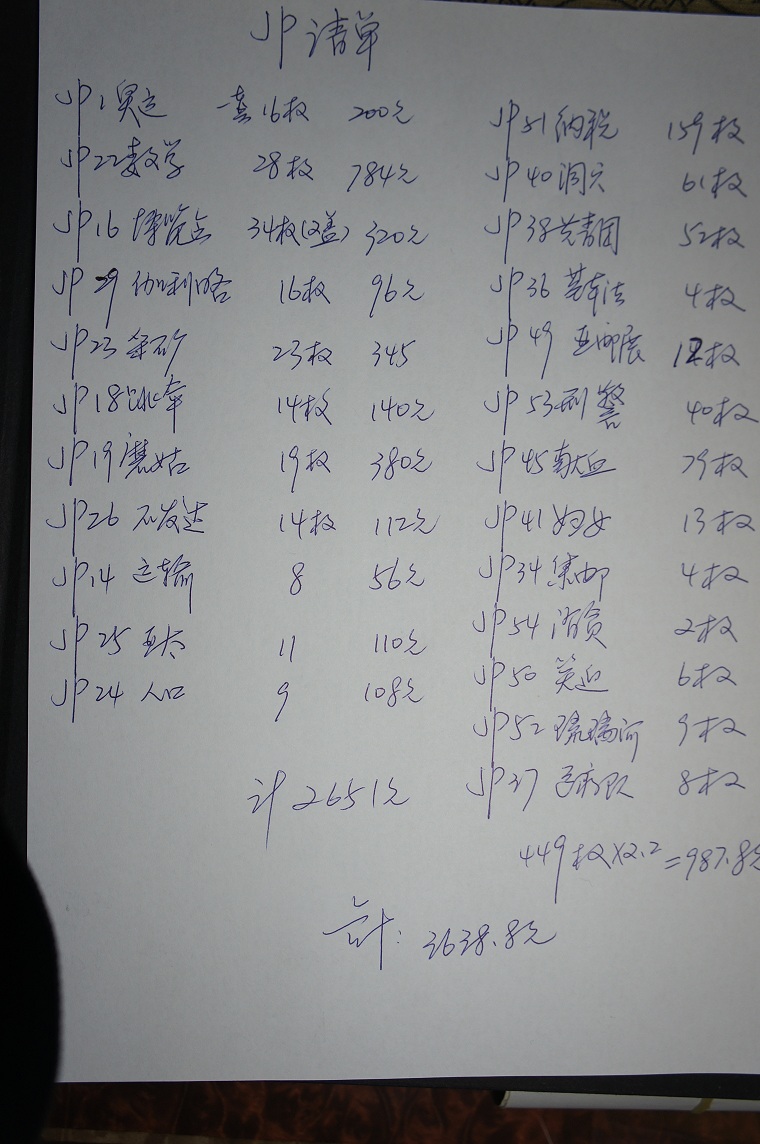 JP清单
JP1奥运 一套16枚 200元
JP22数学 28枚 784元
JP16博览会 34枚(文盖) 320元
JP29伽利略 16枚 96元
JP23 23枚 345
JP18跳伞 14枚 140元
JP19蘑菇 19枚 380元
JP26不发达 14枚 112元
JP14运输 8 56元
JP25 11 110元
JP24人口 9 108元
计2651元
JP51纳税 159枚
JP40 61枚
JP38共青团 52枚
JP36基本法 4枚
JP49亚邮展 12枚
JP53刑警 40枚
JP45献血 79枚
JP41妇女 13枚
JP34集邮 4枚
JP54消费 2枚
JP50 6枚
JP52琉璃河 9枚
JP37 8枚
449枚X2.2=987.8元
合计:3638.8元